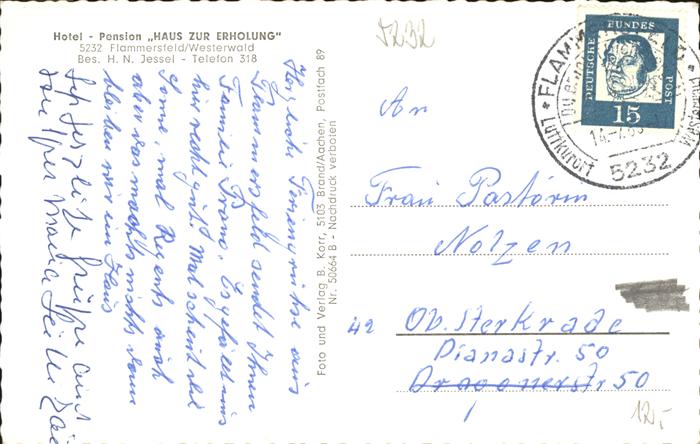 Hotel - Pension „HAUS ZUR ERHOLUNG"
5232 Flammersfeld/Westerwald
Bes. H. N. Jessel - Telefon 318
5232
Herzliche Feriengrüße aus
Flammersfeld sendet Ihnen
Familie Es gefällt uns
hier recht gut. Mal scheint die
Sonne, mal Regents auch
aber das macht nichts dann
bleiben wir im Haus
Herzliche Grüße auch
Foto und Verlag B. Korr, 5103 Brand/Aachen, Postfach 89
Nr. 50664 B - Nachdruck verboten
DEUTSCHE BUNDESPOST
15
FLAMMERSFELD
Luftkurort
5232
An
Frau Pastorin
Nolzen
42 Ob. Sterkrade
Dianastr. 50
Dragonerstr 50
12,-